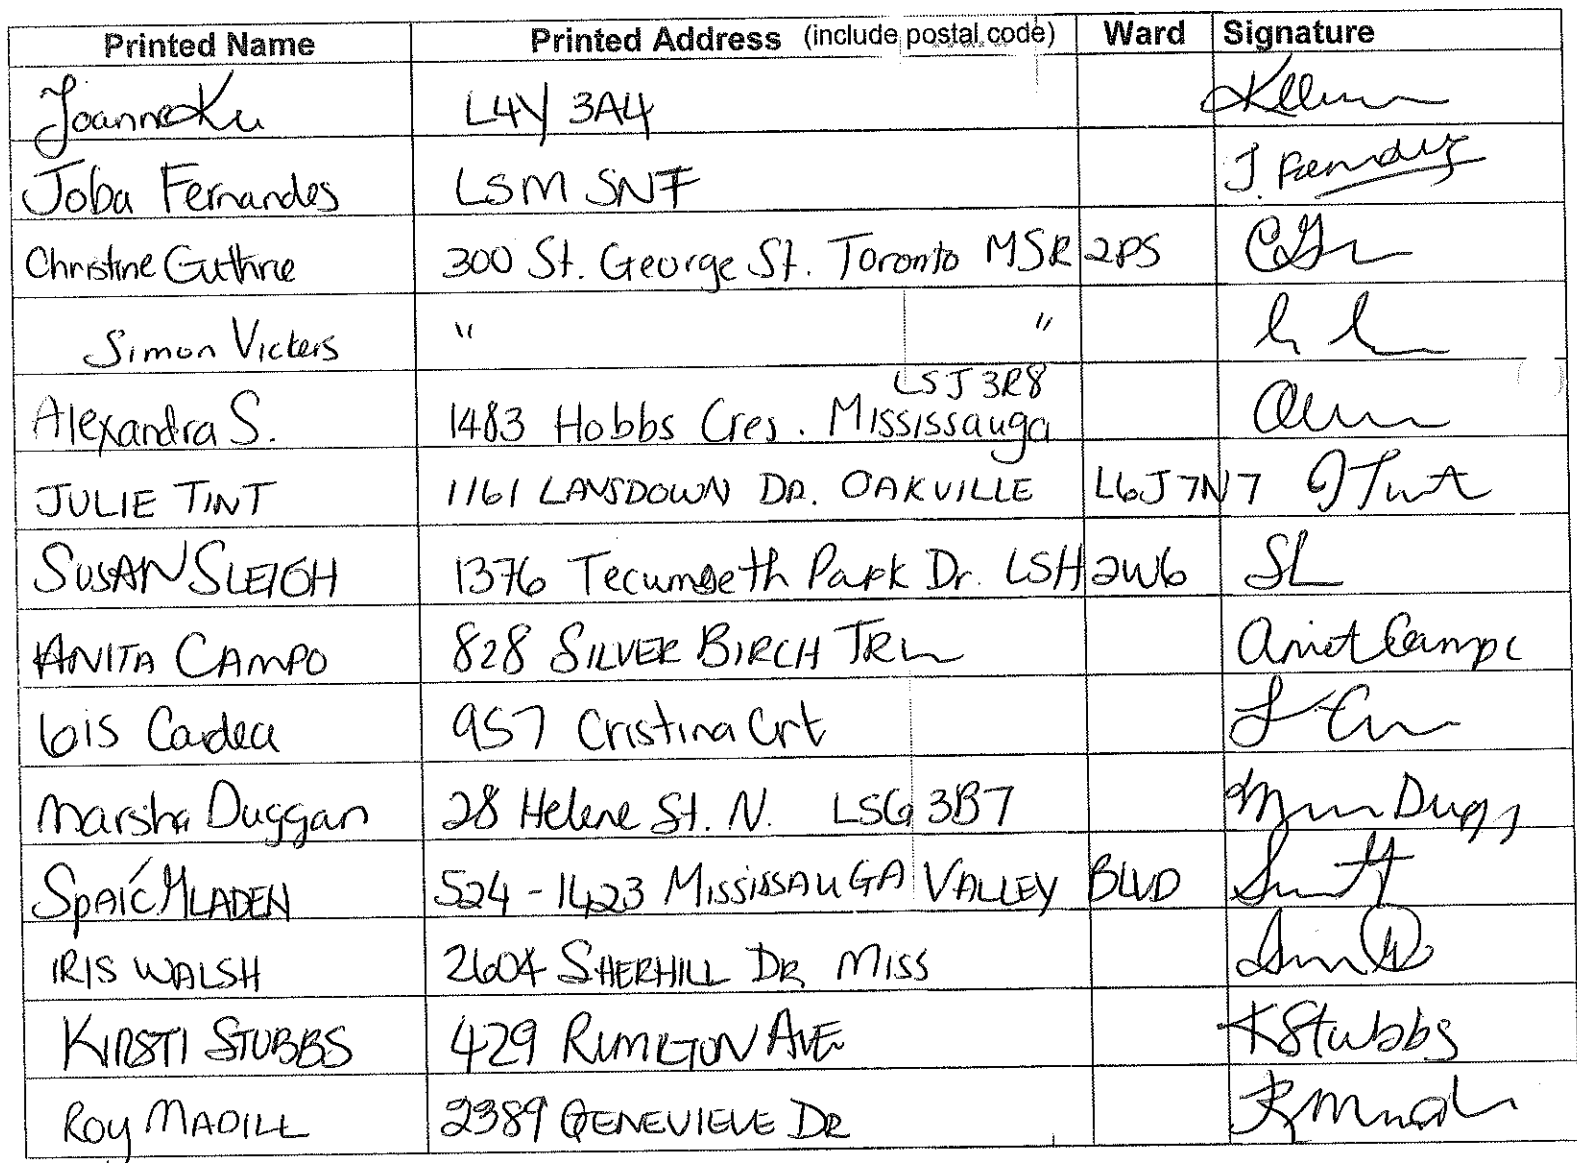 Printed Name Printed Address (include postal code) Ward Signature
Joanne Ku L4Y 3A4
Joba Fernandes L5M 5N7 J. Fernandes
Christine Guthrie 300 St. George St. Toronto M5R 2P5
Simon Vickers " "
L5J 3R8
Alexandra S. 1483 Hobbs Cres. Mississauga
JULIE TINT 1161 LANSDOWN DR. OAKVILLE L6J 7N7 J Tint
SUSAN SLEIGH 1376 Tecumseth Park Dr. L5H 2W6 SL
ANITA CAMPO 828 SILVER BIRCH TRL
Lois Cardea 957 Cristina Crt
Marsha Duggan 28 Helene St. N. L5G 3B7
SPAIĆ MLADEN 524-1423 MISSISSAUGA VALLEY BLVD
IRIS WALSH 2604 SHERHILL DR MISS
KIRSTI STUBBS 429 AVE K Stubbs
Roy MADILL 2389 GENEVIEVE DR